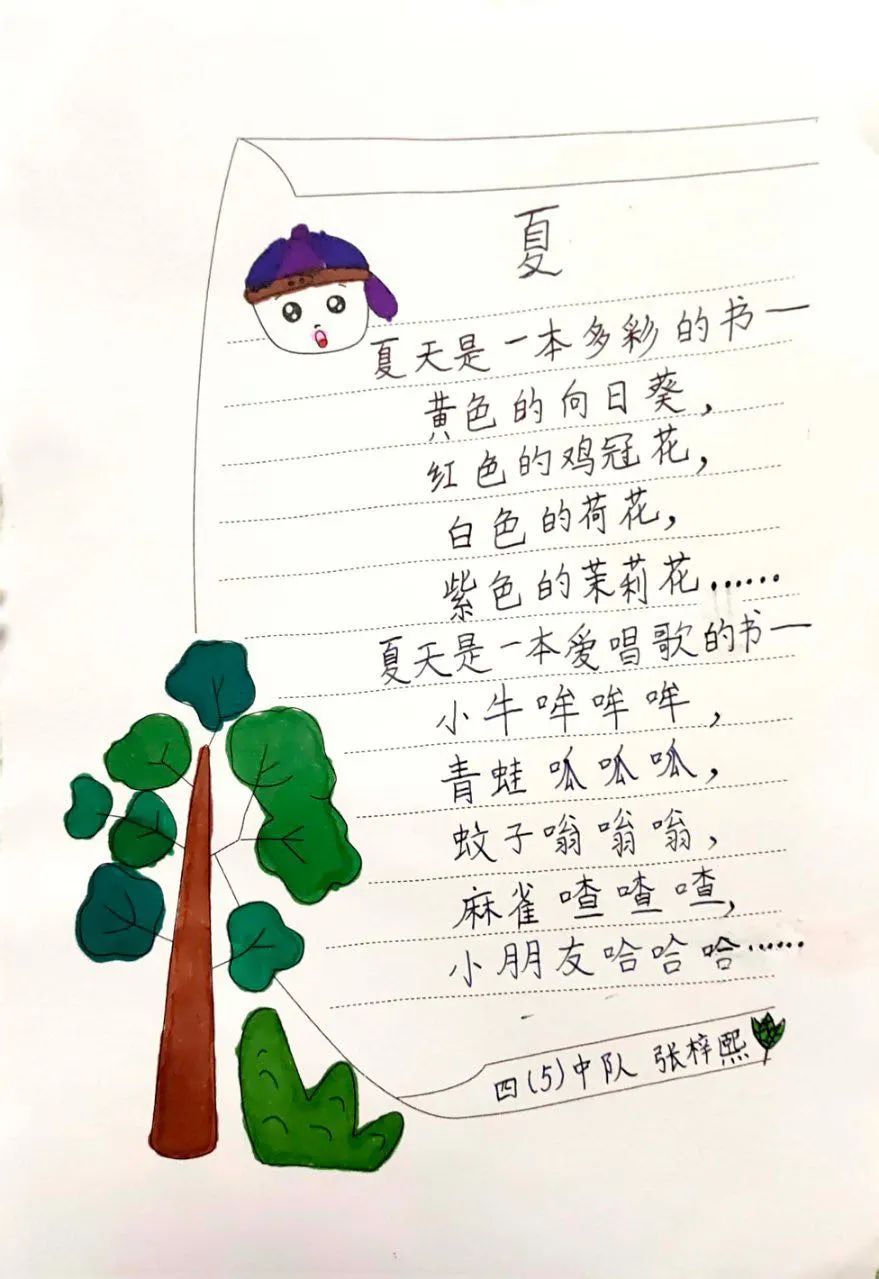 夏
夏天是一本多彩的书一
黄色的向日葵，
红色的鸡冠花，
白色的荷花，
紫色的茉莉花……
夏天是一本爱唱歌的书一
小牛哞哞哞，
青蛙呱呱呱，
蚊子嗡嗡嗡，
麻雀喳喳喳，
小朋友哈哈哈……
四(5)中队 张梓熙